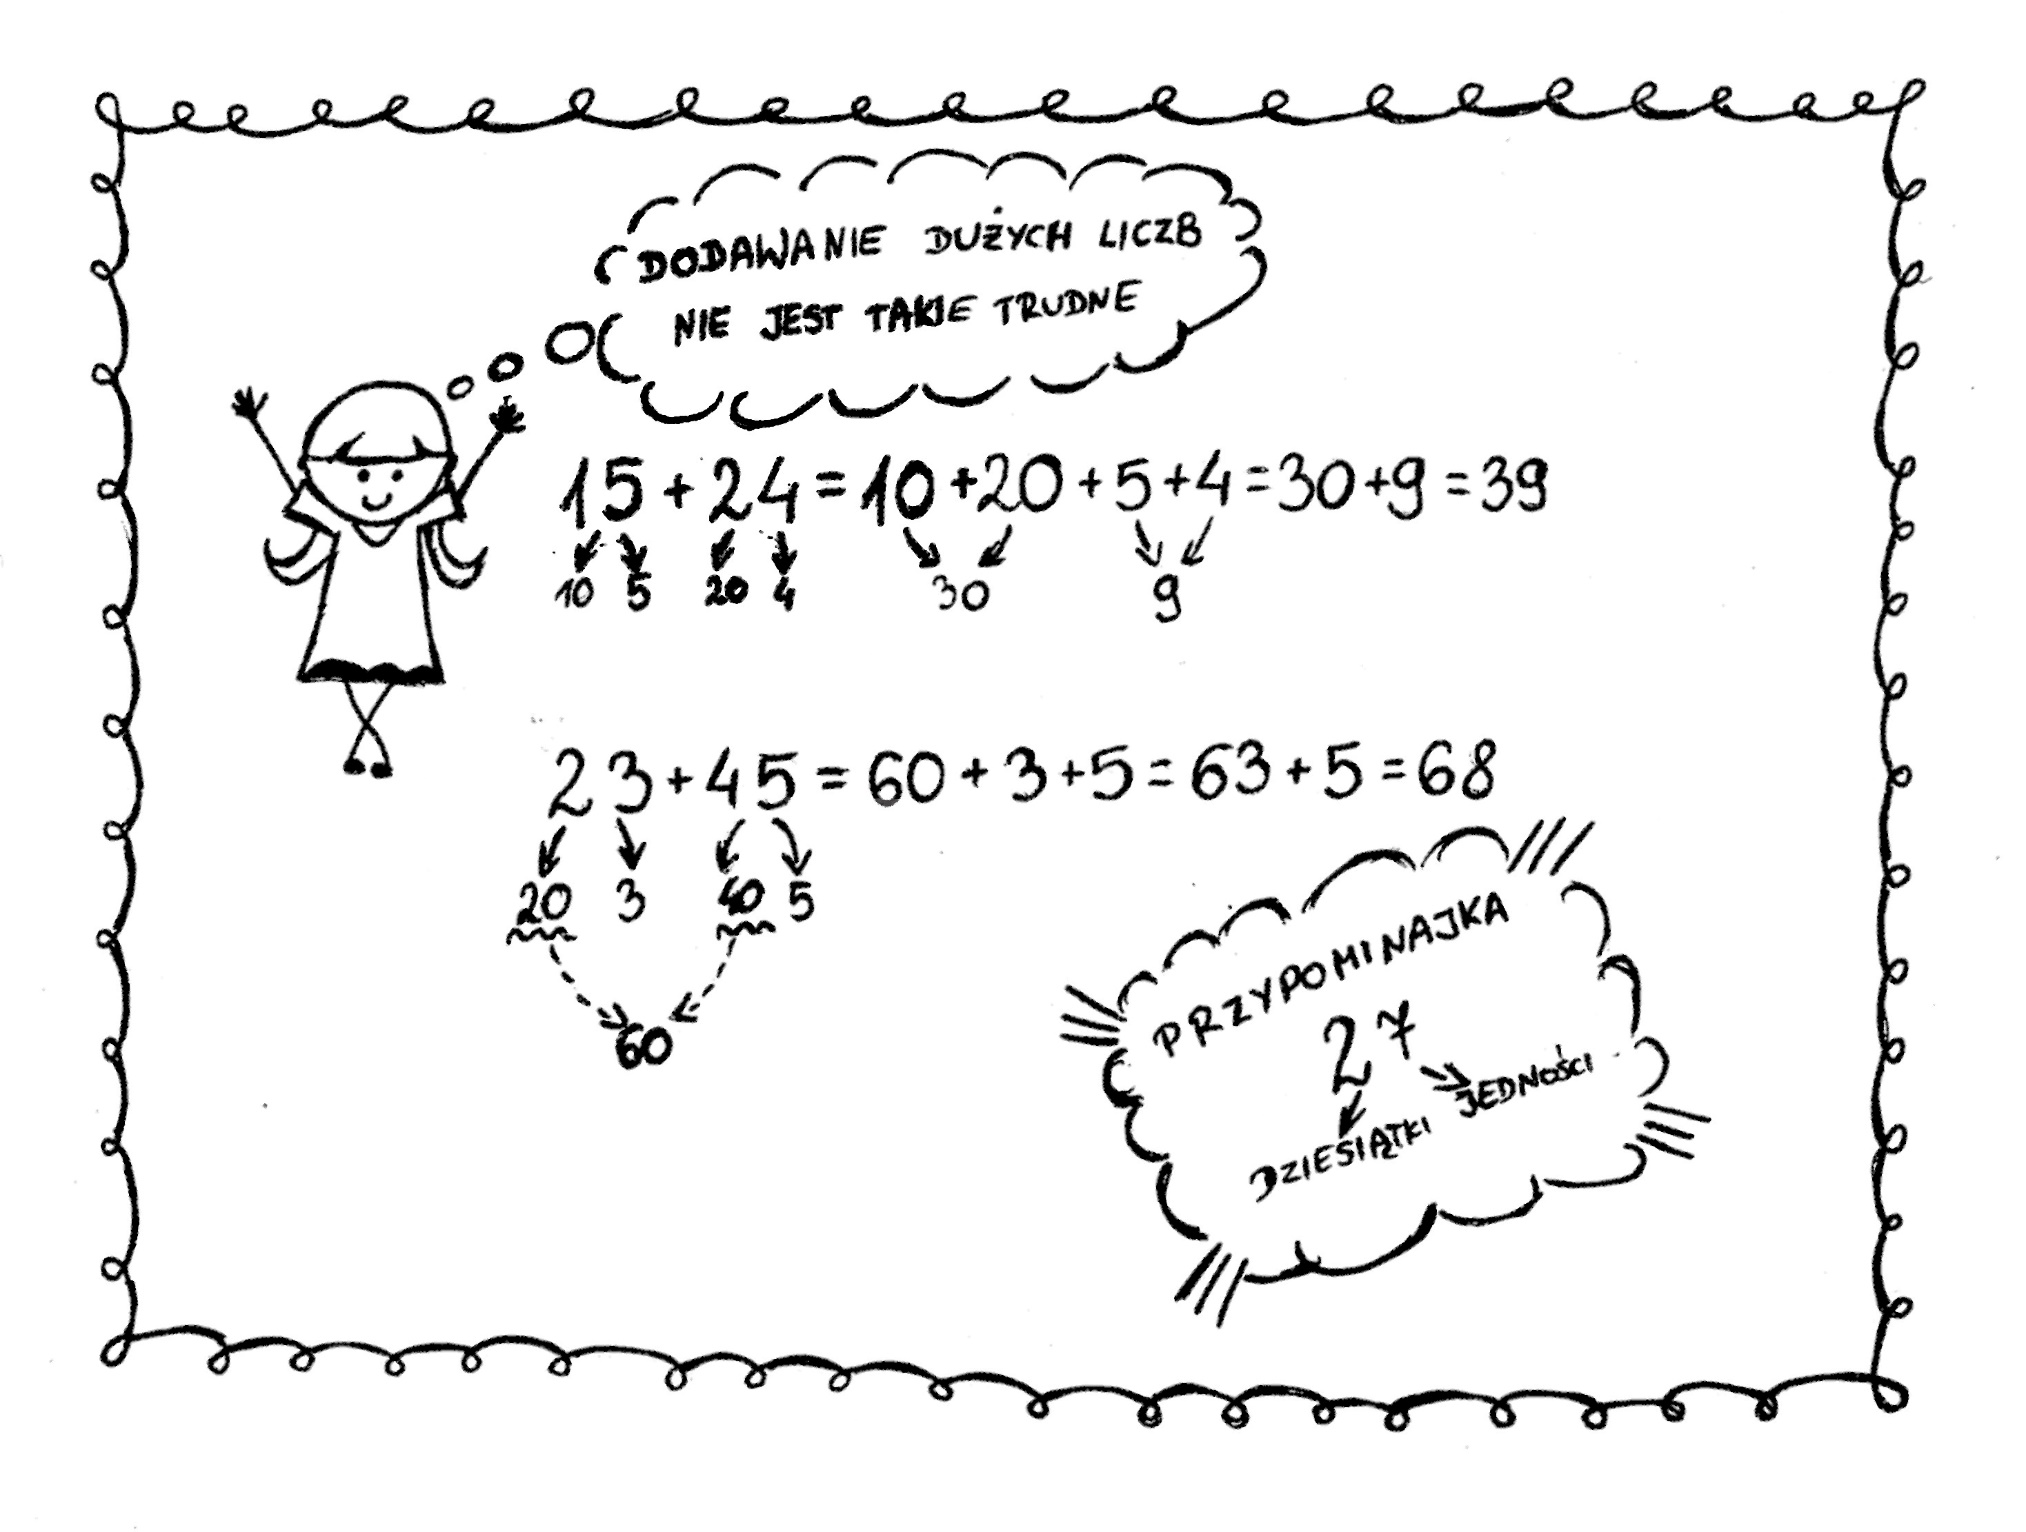 DODAWANIE DUŻYCH LICZB
NIE JEST TAKIE TRUDNE
15 + 24 = 10 + 20 + 5 + 4 = 30 + 9 = 39
10 5 20 4 30 9
23 + 45 = 60 + 3 + 5 = 63 + 5 = 68
20 3 40 5
60
PRZYPOMINAJKA
27
JEDNOŚCI
DZIESIĄTKI